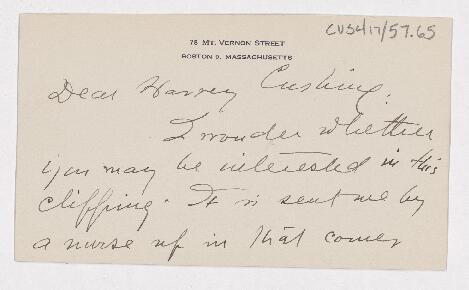 CUS417/57.65
78 MT. VERNON STREET
BOSTON 8, MASSACHUSETTS
Dear Harvey Cushing.
I wonder whether
you may be interested in this
clipping. It is sent me by
a nurse up in that corner